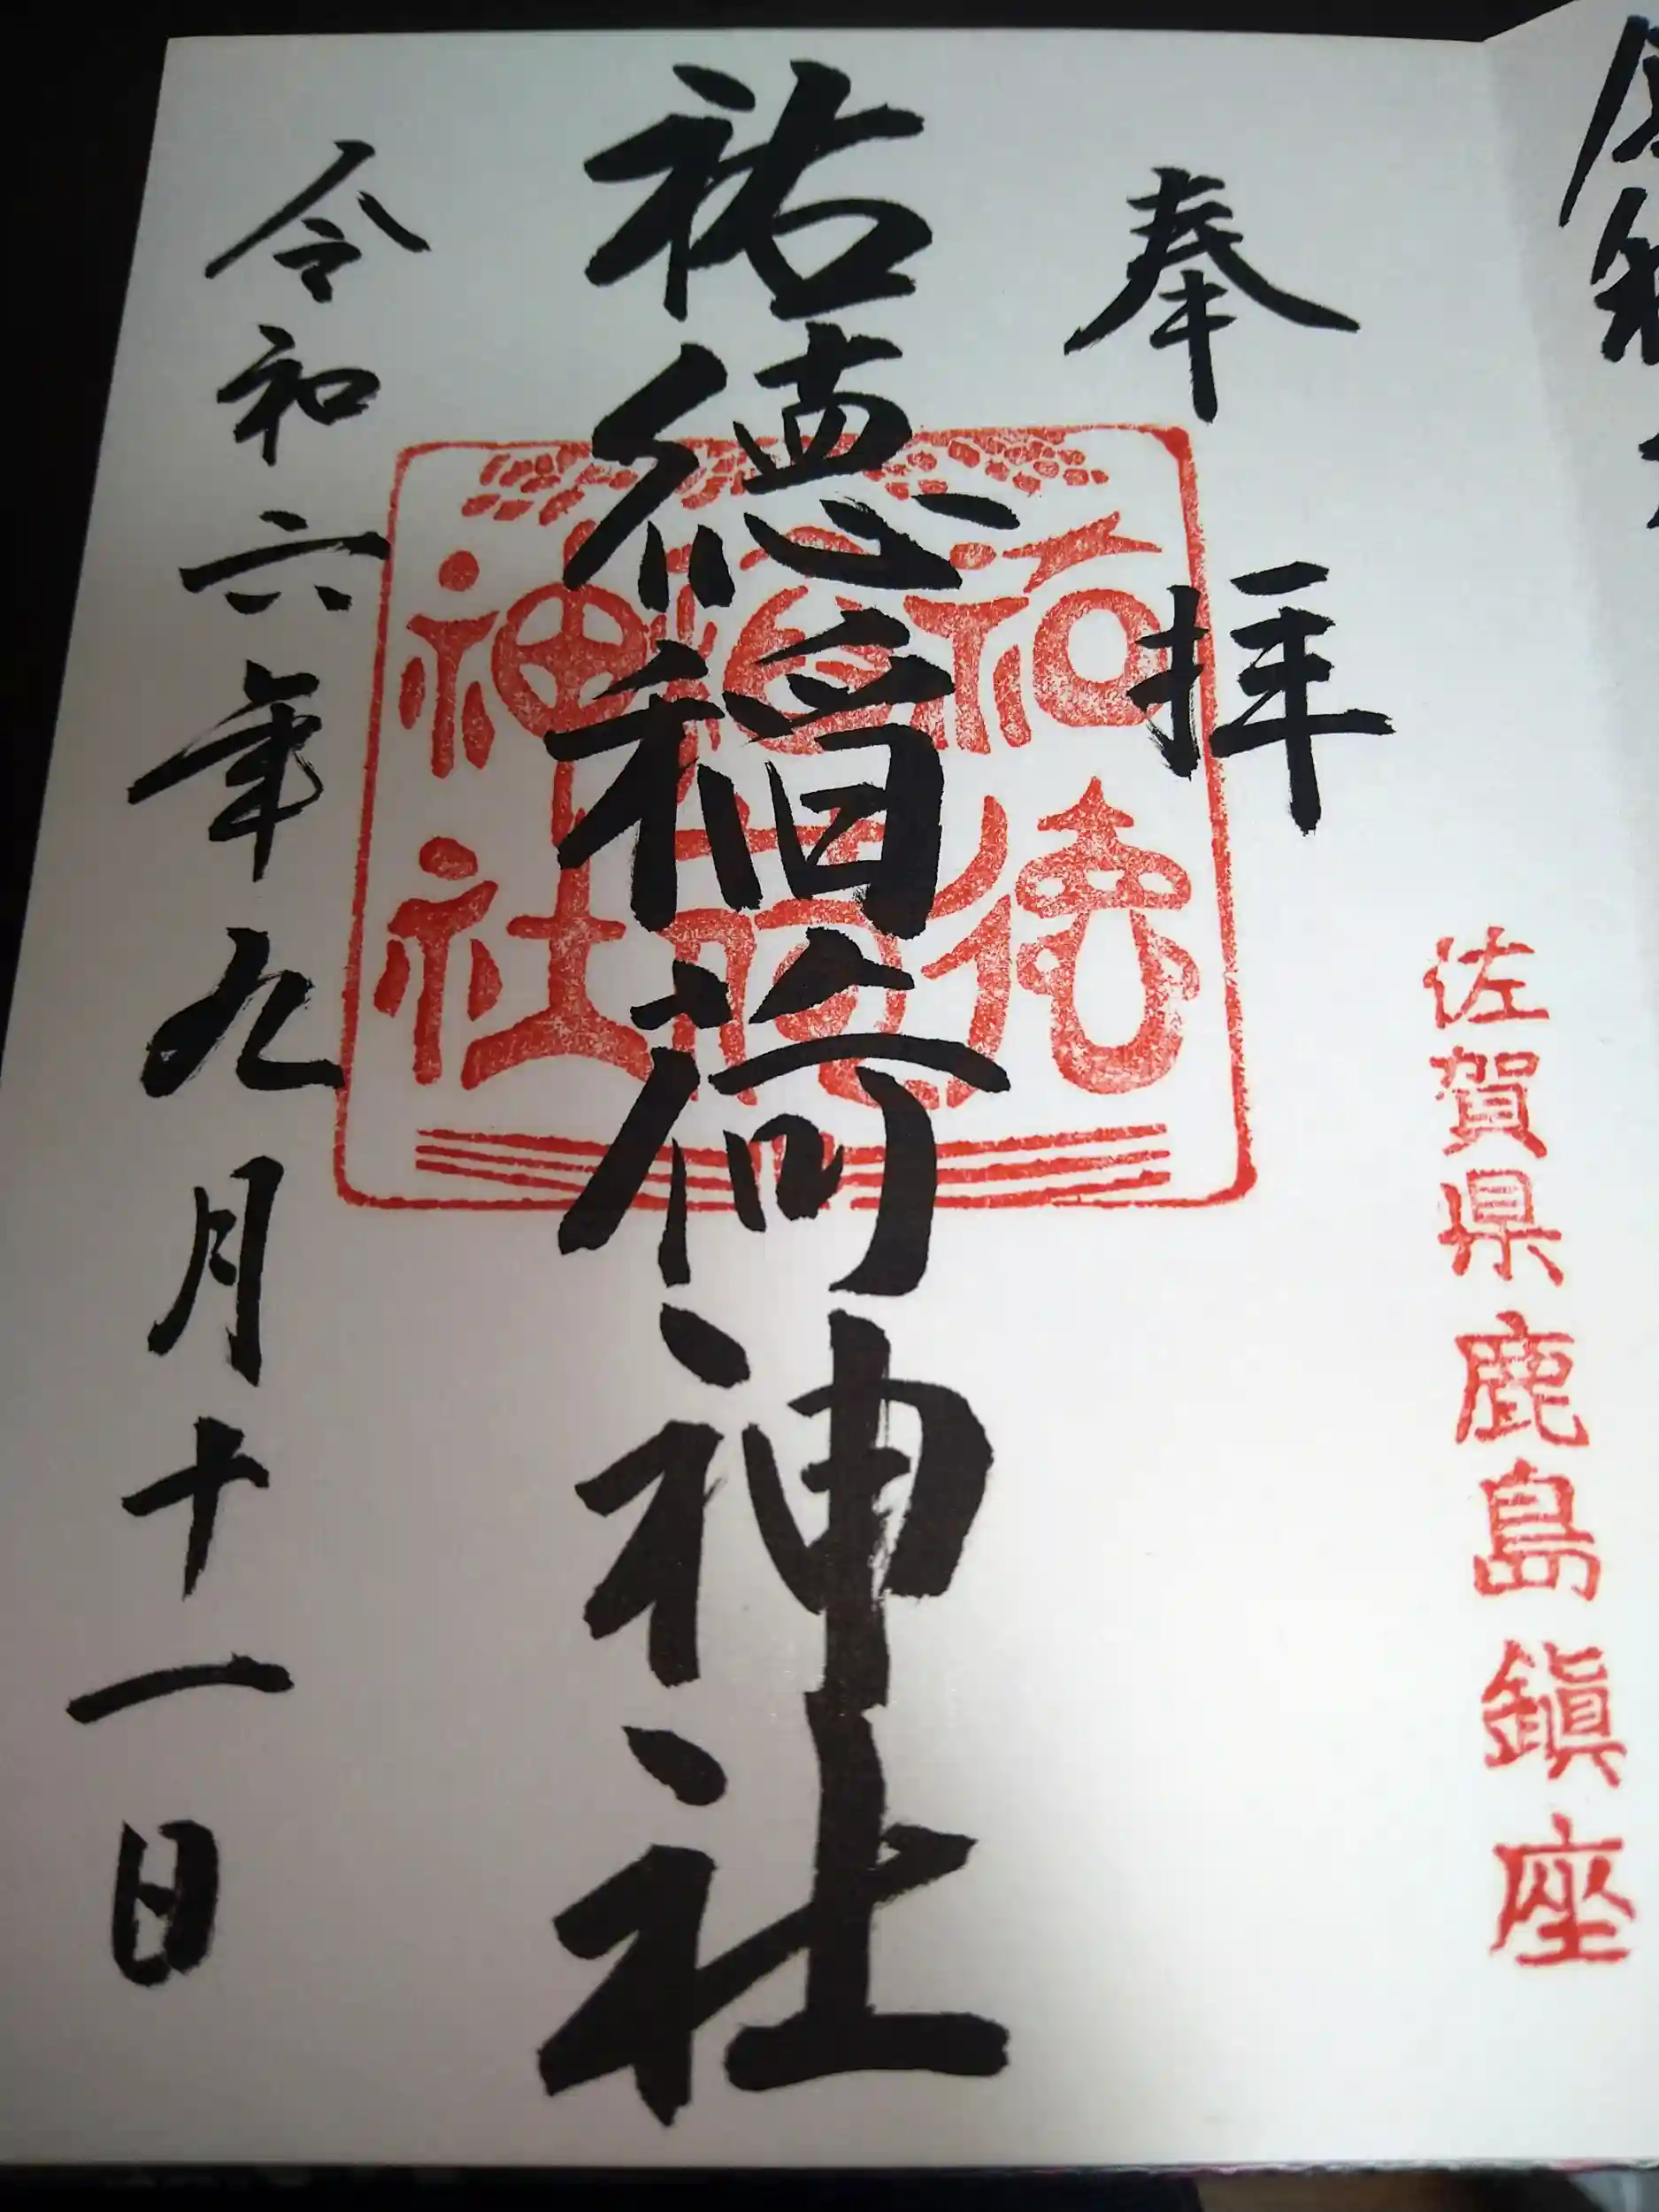 佐賀県鹿島鎮座
奉拝
祐徳稲荷神社
祐徳稲荷神社
令和六年九月十一日